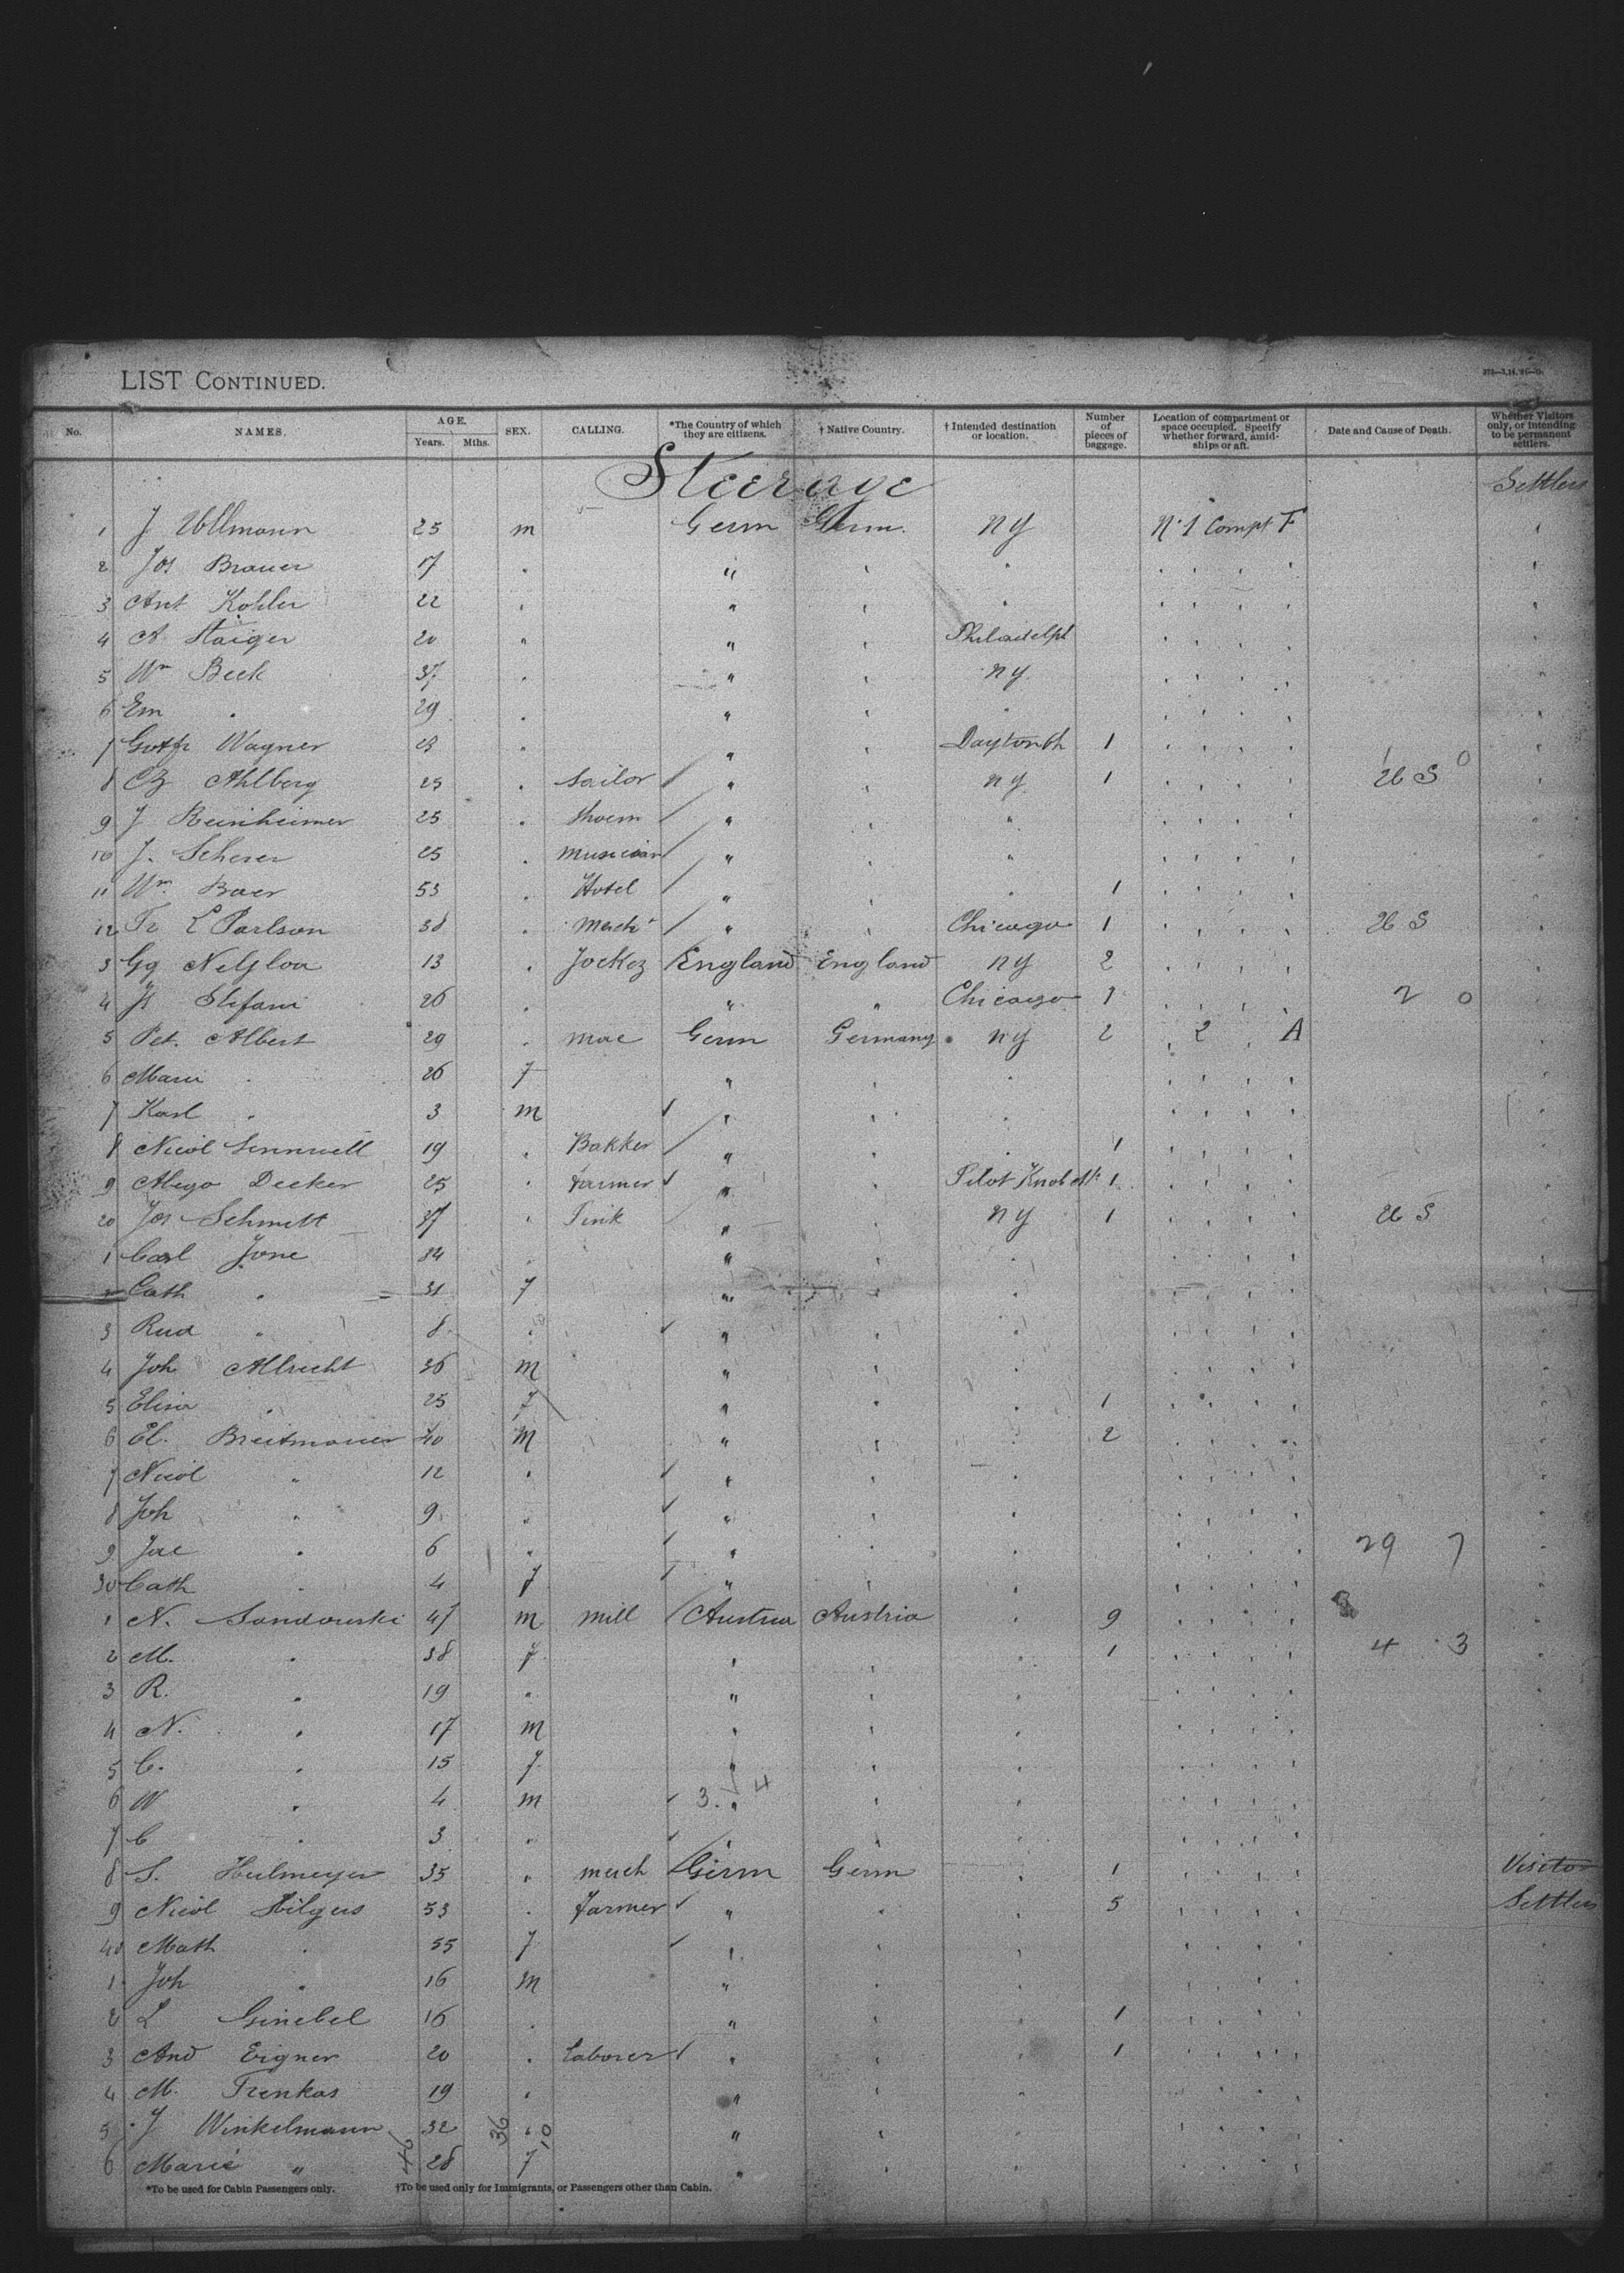 LIST CONTINUED.
No. NAMES. AGE. Years. Mths. SEX. CALLING. *The Country of which they are citizens. † Native Country. † Intended destination or location. Number of pieces of baggage. Location of compartment or space occupied. Specify whether forward, amidships or aft. Date and Cause of Death. Whether Visitors only, or intending to be permanent settlers.
Steerage Settlers
1 J Ullmann 25 m Germ Germ. NY N° 1 Compt F
2 Jos Brauer 17 " "
3 Ant Kohler 22 " "
4 A Staiger 20 " " Philadelph
5 Wm Beck 37 " " NY
6 Em " 29 " "
7 Gottfr Wagner 23 " " Dayton Oh 1
8 Ahlberg 25 " Sailor " NY 1 26 S 0
9 J Reinheimer 25 " Shoem " "
10 J. Scherer 25 " Musician " "
11 Wm Baer 53 " Hotel " " 1
12 Fr L Parlson 38 " Mercht " Chicago 1 26 S
3 Gg 13 " Jockez England England NY 2
4 Stefani 26 " " " Chicago 1 2 0
5 Pet. Albert 29 " mac Germ Germany NY 2 2 A
6 Marie " 26 f "
7 Karl " 3 m "
8 Nicol 19 " Bakker " 1
9 Decker 25 " Farmer " Pilot Knob 1
20 Jos Schmitt 37 " " NY 1 26 S
1 Carl Jone 34 " "
2 Cath " 31 f "
3 Rud " 8 " "
4 Joh Albrecht 36 m "
5 Elisa " 25 f " 1
6 El. Breitmauer 40 m " 2
7 Nicol " 12 " "
8 Joh " 9 " "
9 Jac " 6 " " 29 7
30 Cath " 4 f "
1 N. Sandowski 47 m mill Austria Austria 9
2 M. " 38 f " 1 4 3
3 R. " 19 " "
4 N. " 17 m "
5 C. " 15 f "
6 W " 4 m 3. " 4
7 C " 3 " "
8 S. Heilmeyer 35 " merch Germ Germ 1 Visitor
9 Nicol Hilgers 53 " Farmer " 5 Settlers
40 Math " 55 f "
1 Joh " 16 m "
2 L Ginebel 16 " " 1
3 And Eigner 20 " Laborer " 1
4 M. Trenkas 19 " "
5 J Winkelmann 32 36 " 10 "
6 Marie " 46 28 f "
*To be used for Cabin Passengers only. †To be used only for Immigrants, or Passengers other than Cabin.